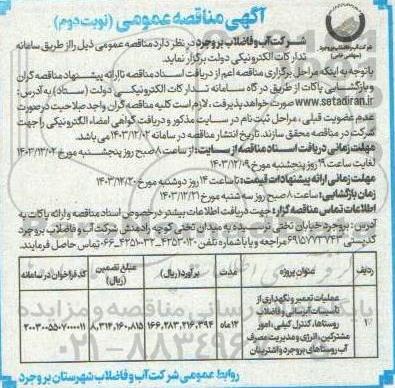 آگهی مناقصه عمومی (نوبت دوم)
شرکت آب و فاضلاب بروجرد در نظر دارد مناقصه عمومی ذیل را از طریق سامانه
تدارکات الکترونیکی دولت برگزار نماید.
باتوجه به اینکه مراحل برگزاری مناقصه اعم از دریافت اسناد مناقصه تا ارائه پیشنهاد مناقصه گران
و بازگشایی پاکات از طریق درگاه سامانه تدارکات الکترونیکی دولت (ستاد) به آدرس:
www.setadiran.ir صورت خواهد پذیرفت، لازم است کلیه مناقصه گران واجد صلاحیت در صورت
عدم عضویت قبلی، مراحل ثبت نام در سایت مذکور و دریافت گواهی امضاء الکترونیکی را جهت
شرکت در مناقصه محقق سازند. تاریخ انتشار مناقصه در سامانه ۱۴۰۳/۱۲/۰۲ می باشد.
مهلت زمانی دریافت اسناد مناقصه از سایت: از ساعت ۸ صبح روز پنجشنبه مورخ ۱۴۰۳/۱۲/۰۲
لغایت ساعت ۱۹ روز پنجشنبه مورخ ۱۴۰۳/۱۲/۰۹
مهلت زمانی ارائه پیشنهادات قیمت: تا ساعت ۱۴ روز دوشنبه مورخ ۱۴۰۳/۱۲/۲۰
زمان بازگشایی: ساعت ۸ صبح روز سه شنبه مورخ ۱۴۰۳/۱۲/۲۱
اطلاعات تماس مناقصه گزار: جهت دریافت اطلاعات بیشتر در خصوص اسناد مناقصه و ارائه پاکات به
آدرس: بروجرد خیابان تختی نرسیده به میدان تختی کوچه رادمنش شرکت آب و فاضلاب بروجرد
کدپستی ۶۹۱۵۷۷۳۷۴۳ مراجعه و یا با شماره تلفن ۴۲۵۳۰۱۲۰-۴۲۵۱۰۳۲-۰۶۶ تماس حاصل فرمایند.
ردیف عنوان پروژه مدت برآورد (ریال) مبلغ تضمین (ریال) کد فراخوان در سامانه
۱ عملیات تعمیر و نگهداری از تاسیسات آبرسانی و فاضلاب روستاها، کنترل کیفی، امور مشترکین، انرژی و مدیریت مصرف آب روستاهای بروجرد و اشترینان ۱۲ ماه ۱۶۶,۲۸۳,۲۱۶,۳۹۴ ۸,۳۱۴,۱۶۰,۸۱۵ ۲۰۰۳۰۰۵۵۰۷۰۰۰۰۱۱
روابط عمومی شرکت آب و فاضلاب شهرستان بروجرد